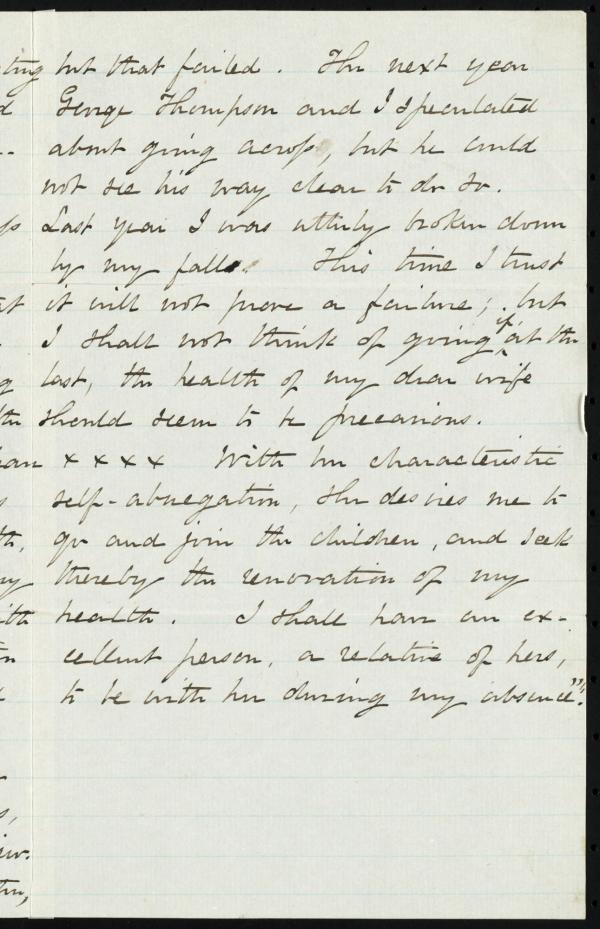 ting but that failed. The next year
d George Thompson and I speculated
-- about going across, but he could
not see his way clear to do so.
Last year I was utterly broken down
by my falls. This time I trust
at it will not prove a failure; but
I shall not think of going, if at the
last, the health of my dear wife
should seem to be precarious.
x x x x With her characteristic
self-abnegation, she desires me to
th, go and join the children, and seek
thereby the renovation of my
ith health. I shall have an ex-
cellent person, a relative of hers,
to be with her during my absence".